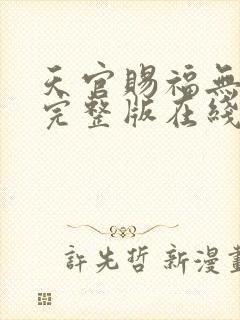 天官賜福無
完整版在綫
許先哲 新漫畫